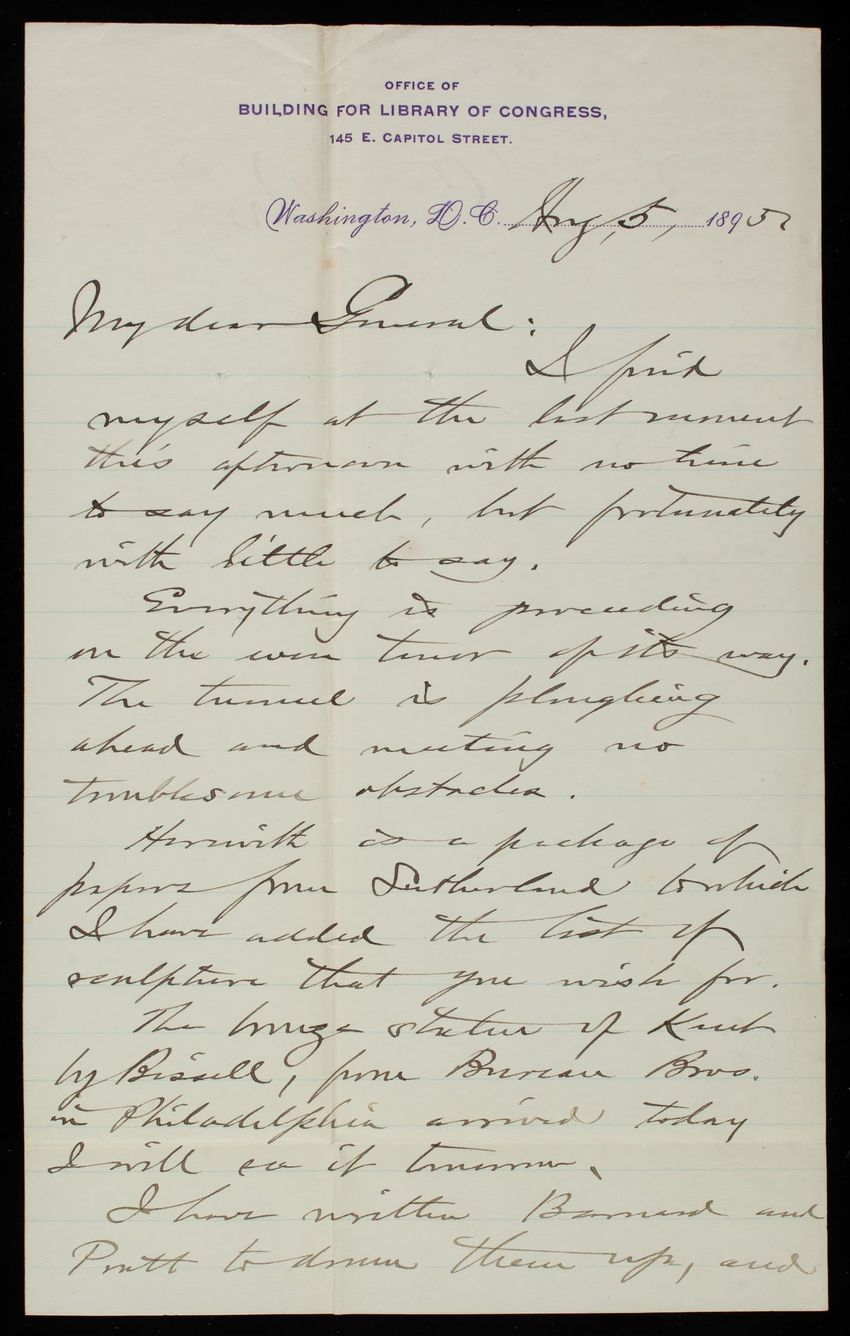 OFFICE OF
BUILDING FOR LIBRARY OF CONGRESS,
145 E. CAPITOL STREET.
Washington, D.C. Aug, 5, 1895
My dear General:
I find
myself at the last moment
this afternoon with no time
to say much, but fortunately
with little to say.
Everything is proceeding
on the even tenor of its way.
The tunnel is ploughing
ahead and meeting no
troublesome obstacles.
Herewith is a package of
papers from Sutherland to which
I have added the list of
sculpture that you wish for.
The bronze statue of Kent
by Bissell, from Bureau Bros.
in Philadelphia arrived today
I will see it tomorrow.
I have written Barnard and
Pratt to drum them up, and